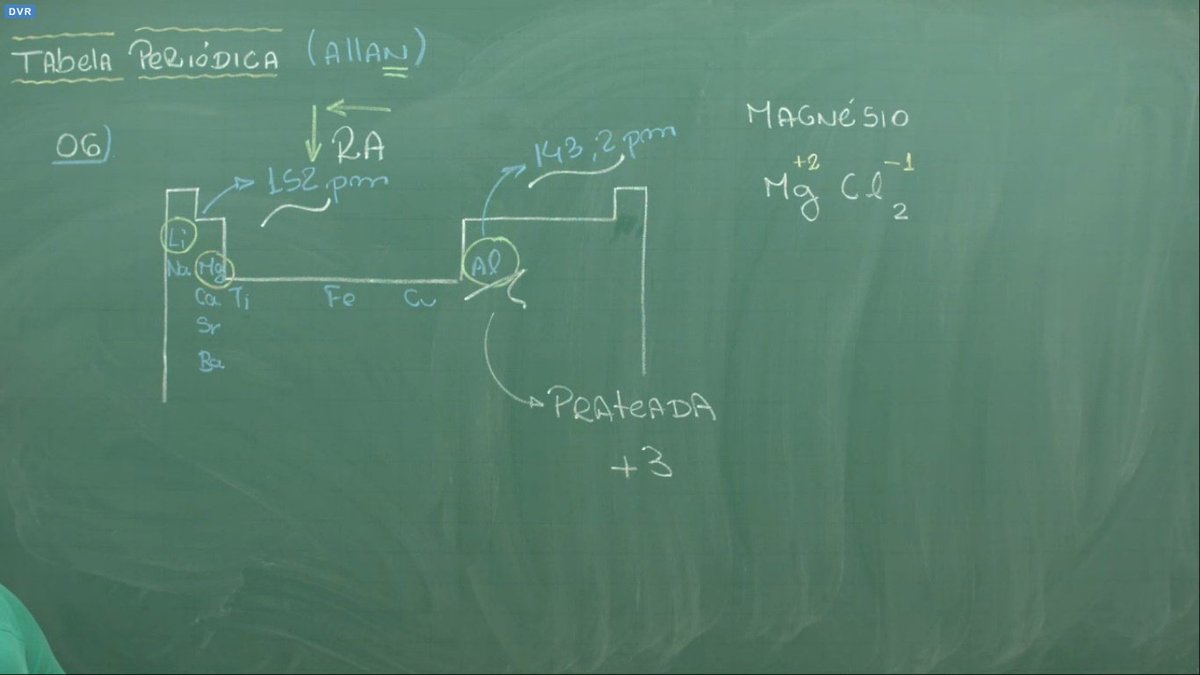 DVR
TAbelA PeRiÓDiCA (AllAN)
06)
RA
152 pm
143,2 pm
MAGNéSiO
+2 -1
Mg Cl2
Li
Na Mg
Al
Ca Ti Fe Cu
Sr
Ba
PRAteADA
+3